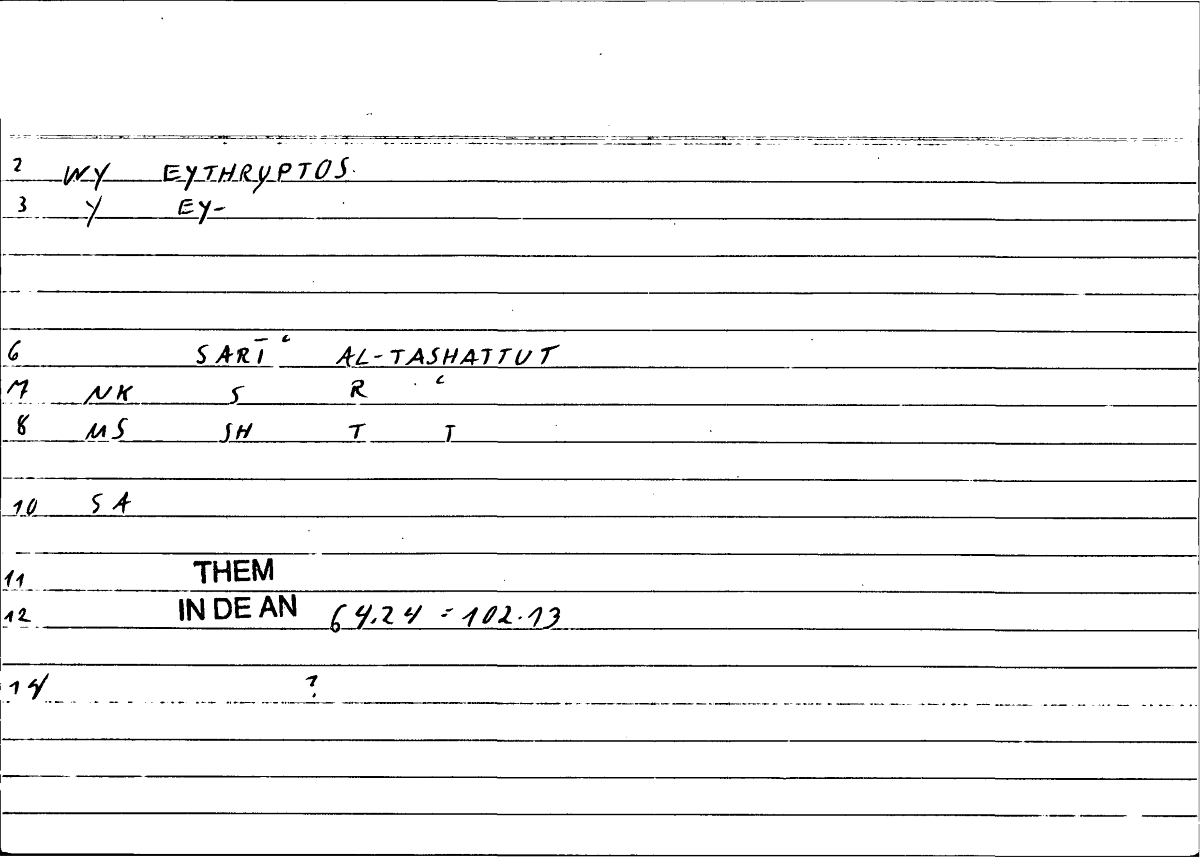 2 WY EYTHRYPTOS.
3 Y EY-
6 SARĪ ʿ AL-TASHATTUT
7 NK S R ʿ
8 MS SH T T
10 SA
11 THEM
12 IN DE AN 64.24 = 102.13
14 ?